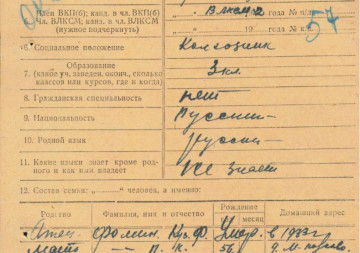 Член ВКП(б), канд. и чл. ВКП(б)
Член ВЛКСМ; канд. и чл. ВЛКСМ
(нужное подчеркнуть)
ВЛКСМ 2 года № п/
19 года № к/
57
6. Социальное положение Колхозник
7. Образование
(какое уч. заведен. оконч., сколько
классов или курсов, где и когда) 3 кл.
8. Гражданская специальность нет
9. Национальность Русский
10. Родной язык русский
11. Какие языки знает кроме род-
ного и как ими владеет не знает
12. Состав семьи: „ “ человек, а именно:
Родство Фамилия, имя и отчество Рождение месяц Домашний адрес
Отец Фомин. Куз. Ф. Умер. в 1933 г
мать — п. К. 56